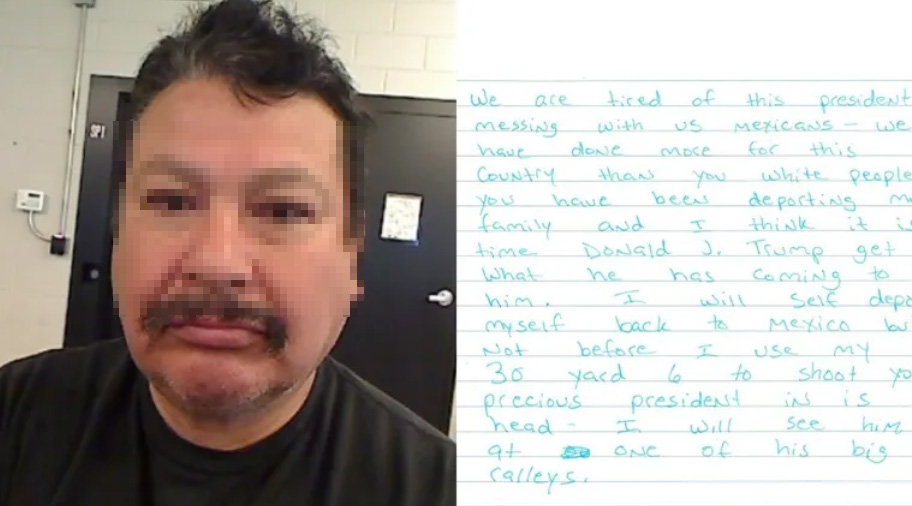 SPI
We are tired of this president
messing with us Mexicans - we
have done more for this
Country than you white people
you have been deporting m
family and I think it is
time Donald J. Trump get
What he has coming to
him. I will self depo
myself back to Mexico bu
Not before I use my
30 yard 6 to shoot yo
precious president in is
head - I will see him
at one of his big
ralleys.